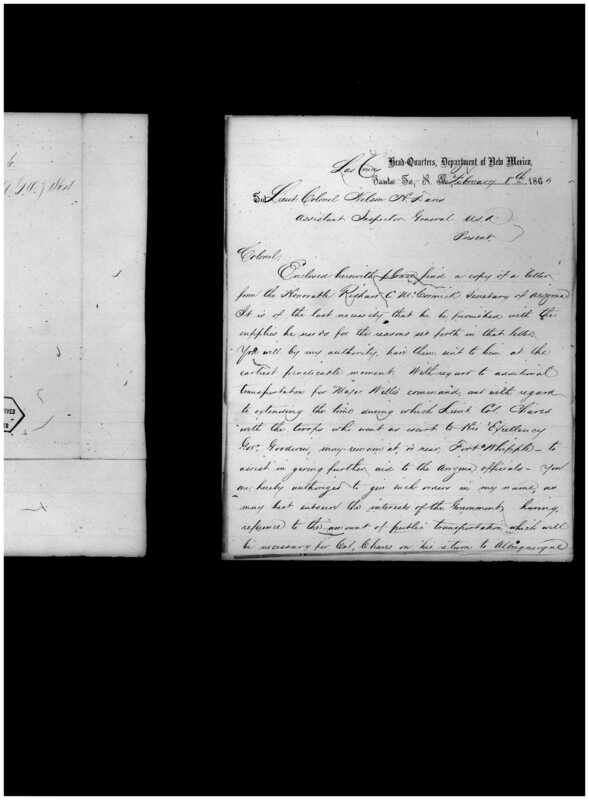 Head-Quarters, Department of New Mexico,
Las Cruces Santa Fe, N. M. February 8th 1864
Lieut. Colonel Nelson H. Davis
Assistant Inspector General U.S.A.
Present,
Colonel,
Enclosed herewith please find a copy of a letter
from the Honorable Richard C. McCormick Secretary of Arizona
It is of the last necessity that he be furnished with the
supplies he needs for the reasons set forth in that letter.
You will by my authority, have them sent to him at the
earliest practicable moment. With regard to additional
transportation for Major Willis' command, and with regard
to extending the time during which Lieut. Col. Chaves
with the troops who went as escort to His Excellency
Gov. Goodwin, may remain at, or near, Fort Whipple – to
assist in giving further aid to the Arizona officials – You
are hereby authorized to give such orders in my name, as
may best subserve the interests of the Government, having
reference to the amount of public transportation which will
be necessary for Col. Chaves on his return to Albuquerque